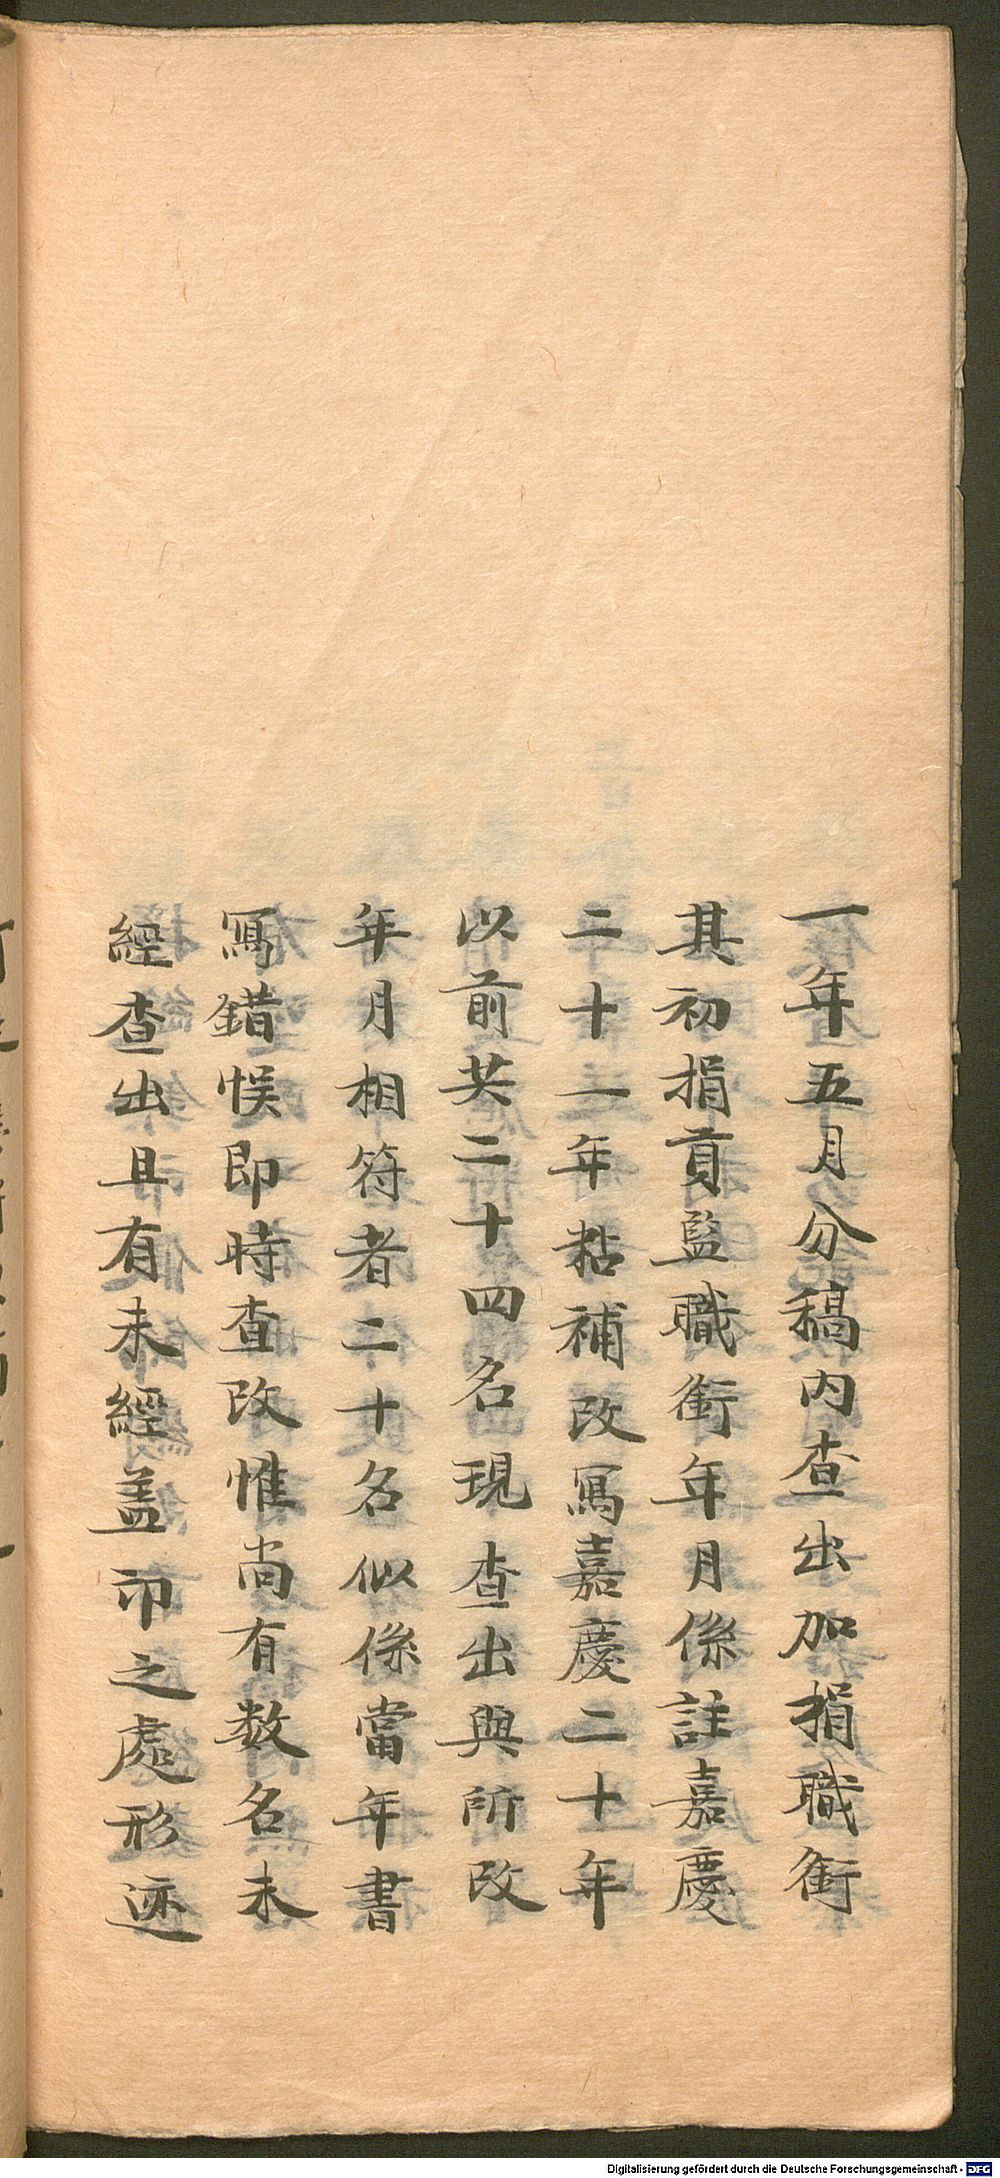 一年五月分稿内查出加捐職銜
其初捐貢監職銜年月係註嘉慶
二十一年粘補改寫嘉慶二十年
以前共二十四名現查出與所改
年月相符者二十名似係當年書
寫錯悮即時查改惟尚有数名未
經查出且有未經盖印之處形迹
Digitalisierung gefördert durch die Deutsche Forschungsgemeinschaft - DFG